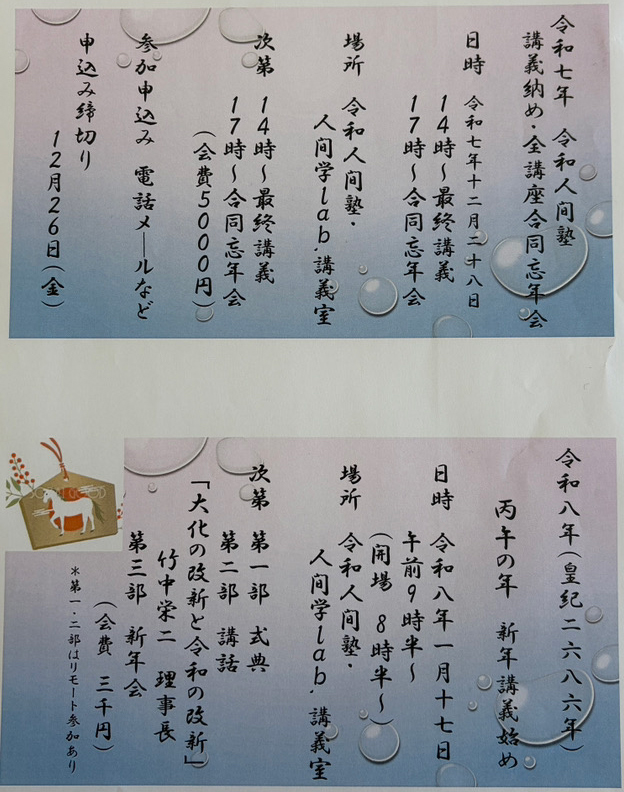 令和七年 令和人間塾
講義納め・全講座合同忘年会
日時 令和七年十二月二十八日
14時~最終講義
17時~合同忘年会
場所 令和人間塾・
人間学lab.講義室
次第 14時~最終講義
17時~合同忘年会
(会費5000円)
参加申込み 電話メールなど
申込み締切り
12月26日(金)
令和八年(皇紀二六八六年)
丙午の年 新年講義始め
日時 令和八年一月十七日
午前9時半~
(開場 8時半~)
場所 令和人間塾・
人間学lab.講義室
次第 第一部 式典
第二部 講話
「大化の改新と令和の改新」
竹中栄二 理事長
第三部 新年会
(会費 三千円)
*第一・二部はリモート参加あり